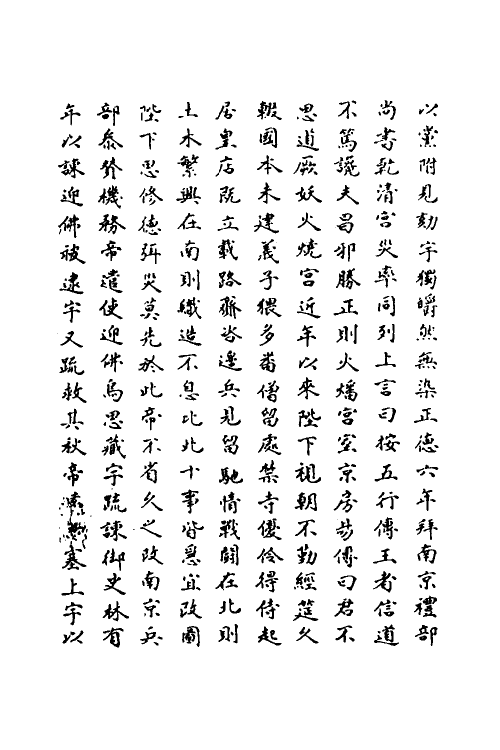 以黨附見劾宇獨皭然無染正德六年拜南京禮部
尚書乾清宮災率同列上言曰按五行傳王者信道
不篤讒夫昌邪勝正則火燔宮室京房易傳曰君不
思道厥妖火燒宮近年以來陛下視朝不勤經筵久
輟國本未建義子猥多番僧留處禁寺優伶得侍起
居皇店既立載路齎咨邊兵見留馳情戰鬪在北則
土木繁興在南則織造不息比此十事皆宜改圖
陛下思修德弭災莫先於此帝不省久之改南京兵
部參機務帝遣使迎佛烏思藏宇疏諫御史林有
年以諫迎佛被逮宇又疏救其秋帝塞上宇以